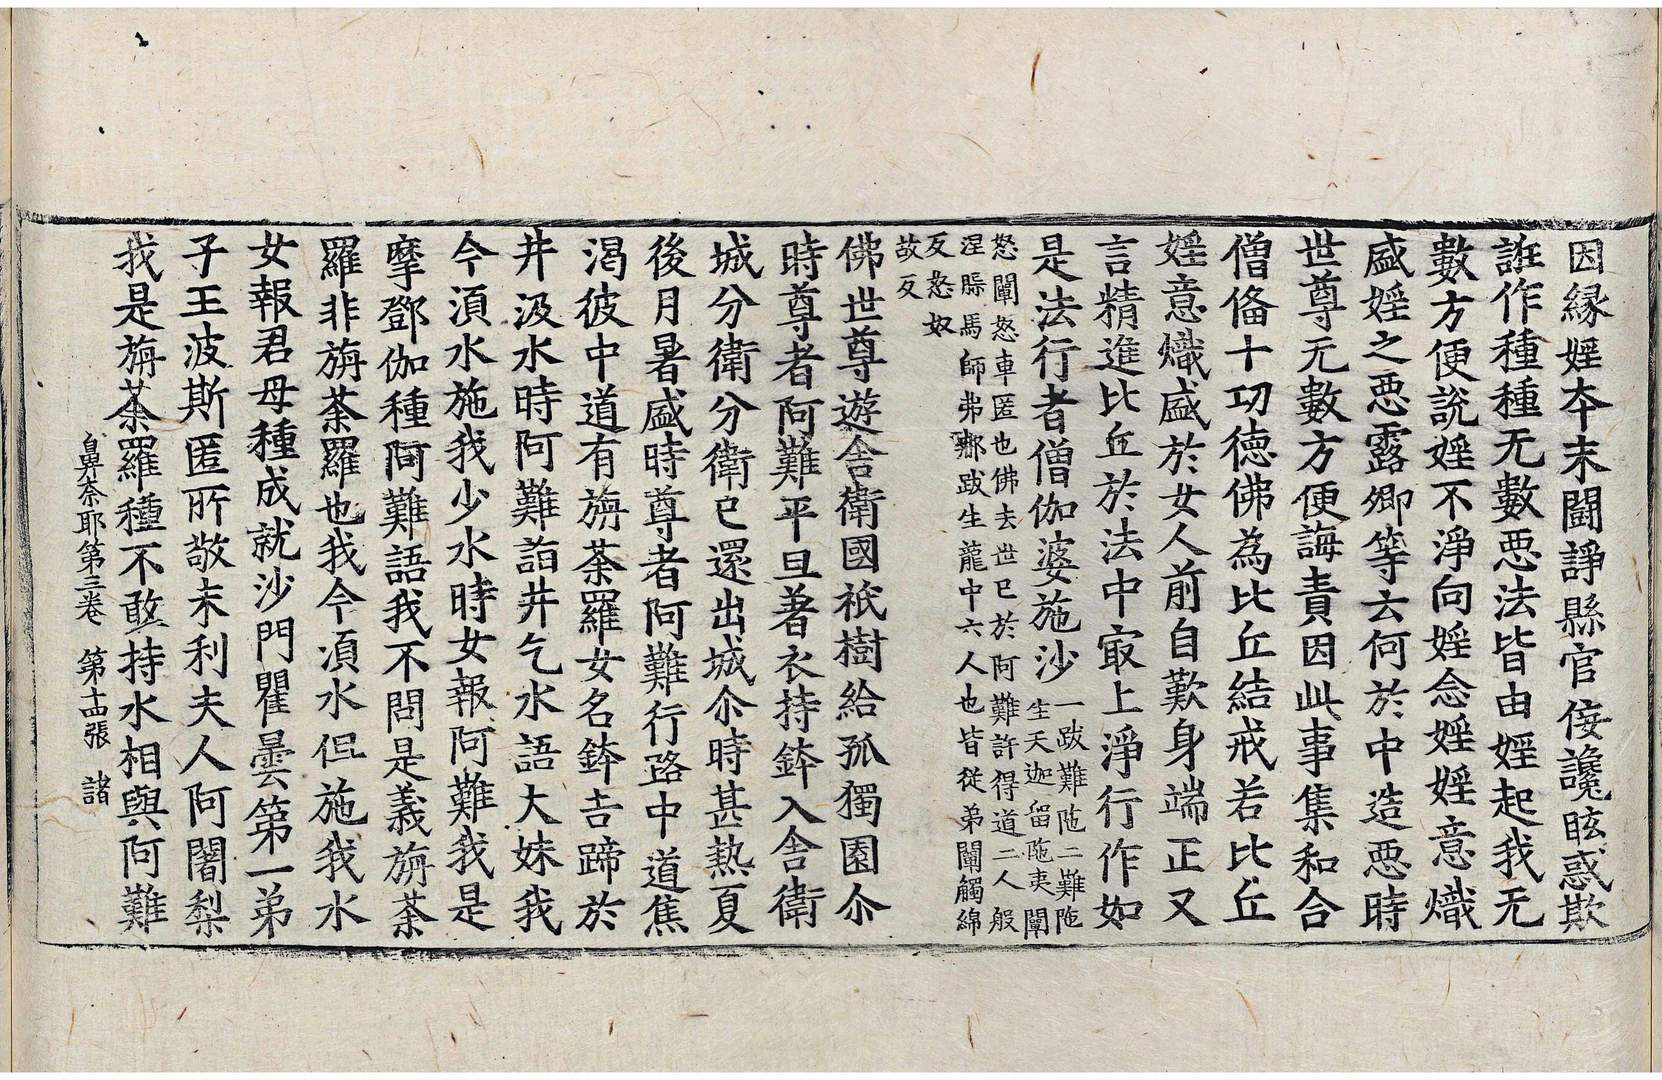 因縁婬夲末鬪諍縣官侫讒眩惑欺
誑作種種无數惡法皆由婬起我无
數方便說婬不淨向婬念婬婬意熾
盛婬之惡露卿等云何於中造惡時
世尊无數方便誨責因此事集和合
僧俻十功德佛為比丘結戒若比丘
婬意熾盛於女人前自歎身端正又
言精進比丘於法中㝡上淨行作如
是法行者僧伽婆施沙一跋難陁二難陁
生天迦留陁夷闡
怒闡怒車匿也佛去世已於阿難許得道二人般
涅槃馬師弗跋生龍中六人也皆從弟闡觸綿
反怒奴
故反
佛世尊遊舍衛國祇樹給孤獨園尒
時尊者阿難平旦著衣持鉢入舍衛
城分衛分衛已還出城尒時甚熱夏
後月暑盛時尊者阿難行路中道焦
渴彼中道有旃荼羅女名鉢吉蹄於
井汲水時阿難詣井乞水語大妹我
今湏水施我少水時女報阿難我是
摩鄧伽種阿難語我不問是義旃荼
羅非旃荼羅也我今湏水但施我水
女報君母種成就沙門瞿曇第一弟
子王波斯匿所敬末利夫人阿闍梨
我是旃荼羅種不敢持水相與阿難
鼻奈耶第三卷 第十四張 諸